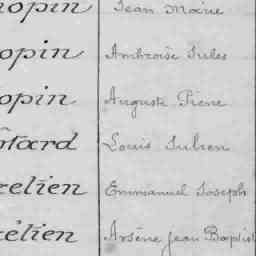 opin Jean Marie
opin Ambroise Jules
opin Auguste Pierre
otard Louis Julien
relien Emmanuel Joseph
rélien Arsène Jean Baptist